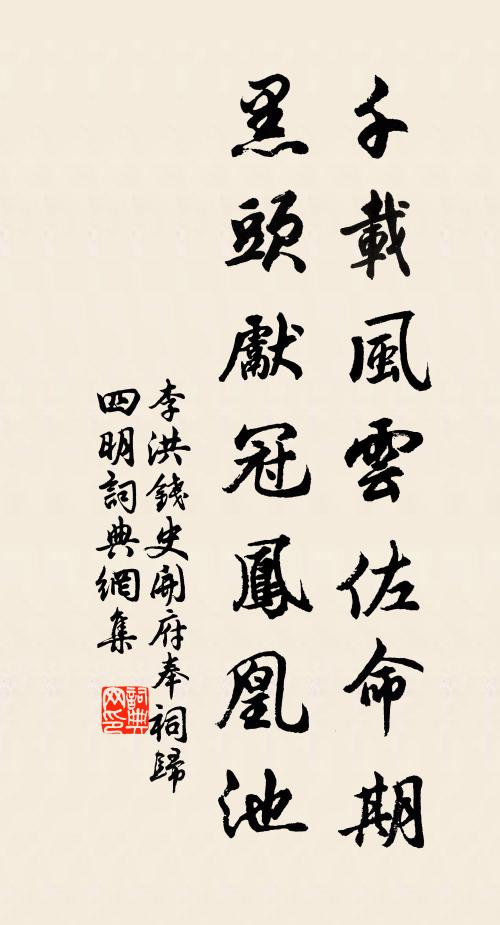 千載風雲佐命期
黑頭獻冠鳳凰池
李洪錢史開府奉祠歸
四明詞典網集
詞典網印